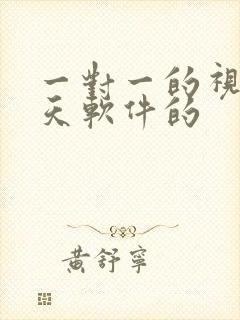 一對一的視
天軟件的
黃舒寧